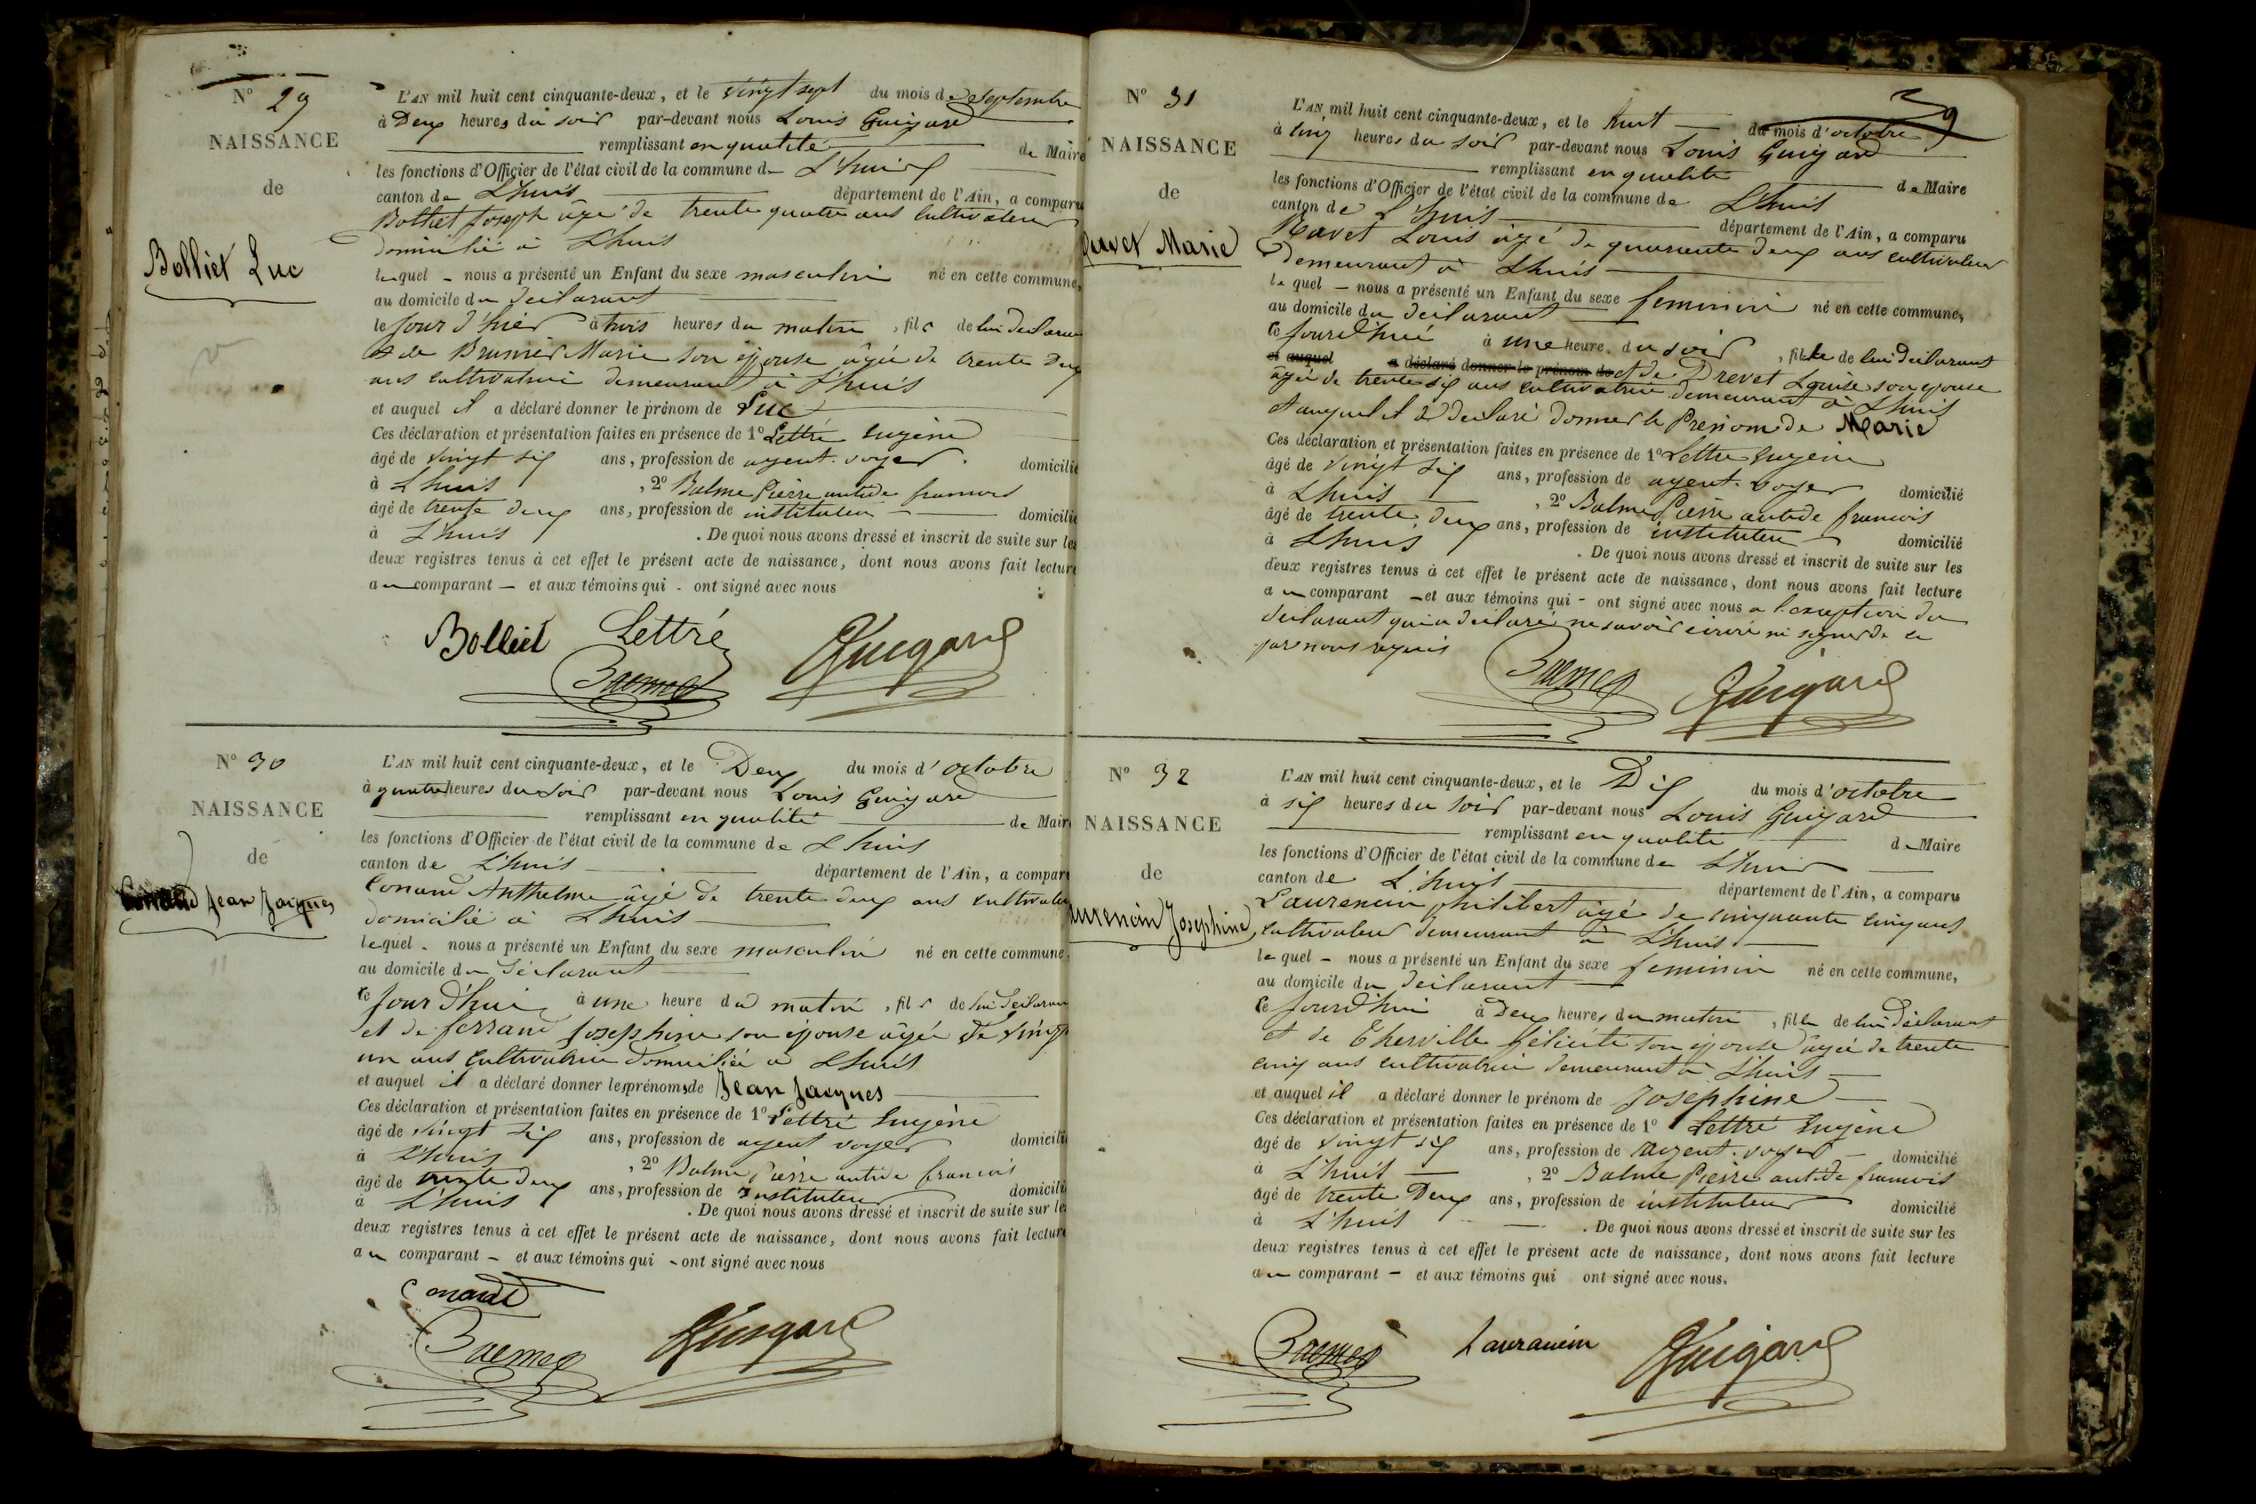 Nº 29
NAISSANCE
de
Bolliet Luc
L'AN mil huit cent cinquante-deux, et le vingt sept du mois de Septembre
à Deux heures du soir par-devant nous Louis Guigard
remplissant en qualité de Maire
les fonctions d'Officier de l'état civil de la commune de L'huis
canton de L'huis département de l'Ain, a comparu
Bolliet Joseph âgé de trente quatre ans cultivateur
domicilié à L'huis
lequel nous a présenté un Enfant du sexe masculin né en cette commune,
au domicile du déclarant
le jour d'hier à trois heures du matin, fils de lui déclarant
et de Brunier Marie son épouse âgée de trente deux
ans cultivatrice demeurant à L'huis
et auquel il a déclaré donner le prénom de Luc
Ces déclaration et présentation faites en présence de 1º Lettré Eugène
âgé de vingt six ans, profession de agent-voyer domicilié
à Lhuis, 2º Balme Pierre antide francois
âgé de trente deux ans, profession de instituteur domicilié
à L'huis. De quoi nous avons dressé et inscrit de suite sur les
deux registres tenus à cet effet le présent acte de naissance, dont nous avons fait lecture
au comparant et aux témoins qui ont signé avec nous
Bolliet Lettré
Balme Guigard
Nº 30
NAISSANCE
de
Conand Jean Jacques
L'AN mil huit cent cinquante-deux, et le Deux du mois d'octobre
à quatre heures du soir par-devant nous Louis Guigard
remplissant en qualité de Maire
les fonctions d'Officier de l'état civil de la commune de Lhuis
canton de L'huis département de l'Ain, a comparu
Conand Anthelme âgé de trente deux ans cultivateur
domicilié à Lhuis
lequel nous a présenté un Enfant du sexe masculin né en cette commune,
au domicile du déclarant
ce jour d'hui à une heure du matin, fils de lui déclarant
et de ferrand Josephine son épouse âgée de vingt
un ans cultivatrice domiciliée à Lhuis
et auquel il a déclaré donner les prénoms de Jean Jacques
Ces déclaration et présentation faites en présence de 1º Lettré Eugène
âgé de vingt six ans, profession de agent voyer domicilié
à L'huis, 2º Balme Pierre antide francois
âgé de trente deux ans, profession de Instituteur domicilié
à L'huis. De quoi nous avons dressé et inscrit de suite sur les
deux registres tenus à cet effet le présent acte de naissance, dont nous avons fait lecture
au comparant et aux témoins qui ont signé avec nous
Conand
Balme Guigard
39
Nº 31
NAISSANCE
de
Marie
L'AN mil huit cent cinquante-deux, et le huit du mois d'octobre
à cinq heures du soir par-devant nous Louis Guigard
remplissant en qualité de Maire
les fonctions d'Officier de l'état civil de la commune de Lhuis
canton de L'huis département de l'Ain, a comparu
Louis âgé de quarante deux ans cultivateur
demeurant à Lhuis
lequel nous a présenté un Enfant du sexe feminin né en cette commune,
au domicile du déclarant
ce jourd'hui à une heure du soir, fille de lui déclarant
et auquel a déclaré donner le prénom de et de Drevet Louise son épouse
âgée de trente six ans cultivatrice demeurant à Lhuis
et auquel il a declaré donner le Prenom de Marie
Ces déclaration et présentation faites en présence de 1º Lettré Eugène
âgé de vingt six ans, profession de agent-voyer domicilié
à Lhuis, 2º Balme Pierre antide francois
âgé de trente deux ans, profession de instituteur domicilié
à Lhuis. De quoi nous avons dressé et inscrit de suite sur les
deux registres tenus à cet effet le présent acte de naissance, dont nous avons fait lecture
au comparant et aux témoins qui ont signé avec nous a l'exception du
déclarant qui a déclaré ne savoir écrire ni signer de ce
par nous requis
Balme Guigard
Nº 32
NAISSANCE
de
Laurencin Josephine
L'AN mil huit cent cinquante-deux, et le Dix du mois d'octobre
à six heures du soir par-devant nous Louis Guigard
remplissant en qualité de Maire
les fonctions d'Officier de l'état civil de la commune de Lhuis
canton de L'huis département de l'Ain, a comparu
Laurencin philibert âgé de cinquante cinq ans
cultivateur demeurant à L'huis
lequel nous a présenté un Enfant du sexe feminin né en cette commune,
au domicile du déclarant
ce jourd'hui à Deux heures du matin, fille de lui déclarant
et de félicité son épouse âgée de trente
cinq ans cultivatrice demeurant à L'huis
et auquel il a déclaré donner le prénom de Josephine
Ces déclaration et présentation faites en présence de 1º Lettré Eugène
âgé de vingt six ans, profession de agent-voyer domicilié
à L'huis, 2º Balme Pierre antide francois
âgé de trente Deux ans, profession de instituteur domicilié
à L'huis. De quoi nous avons dressé et inscrit de suite sur les
deux registres tenus à cet effet le présent acte de naissance, dont nous avons fait lecture
au comparant et aux témoins qui ont signé avec nous.
Balme Laurancin Guigard